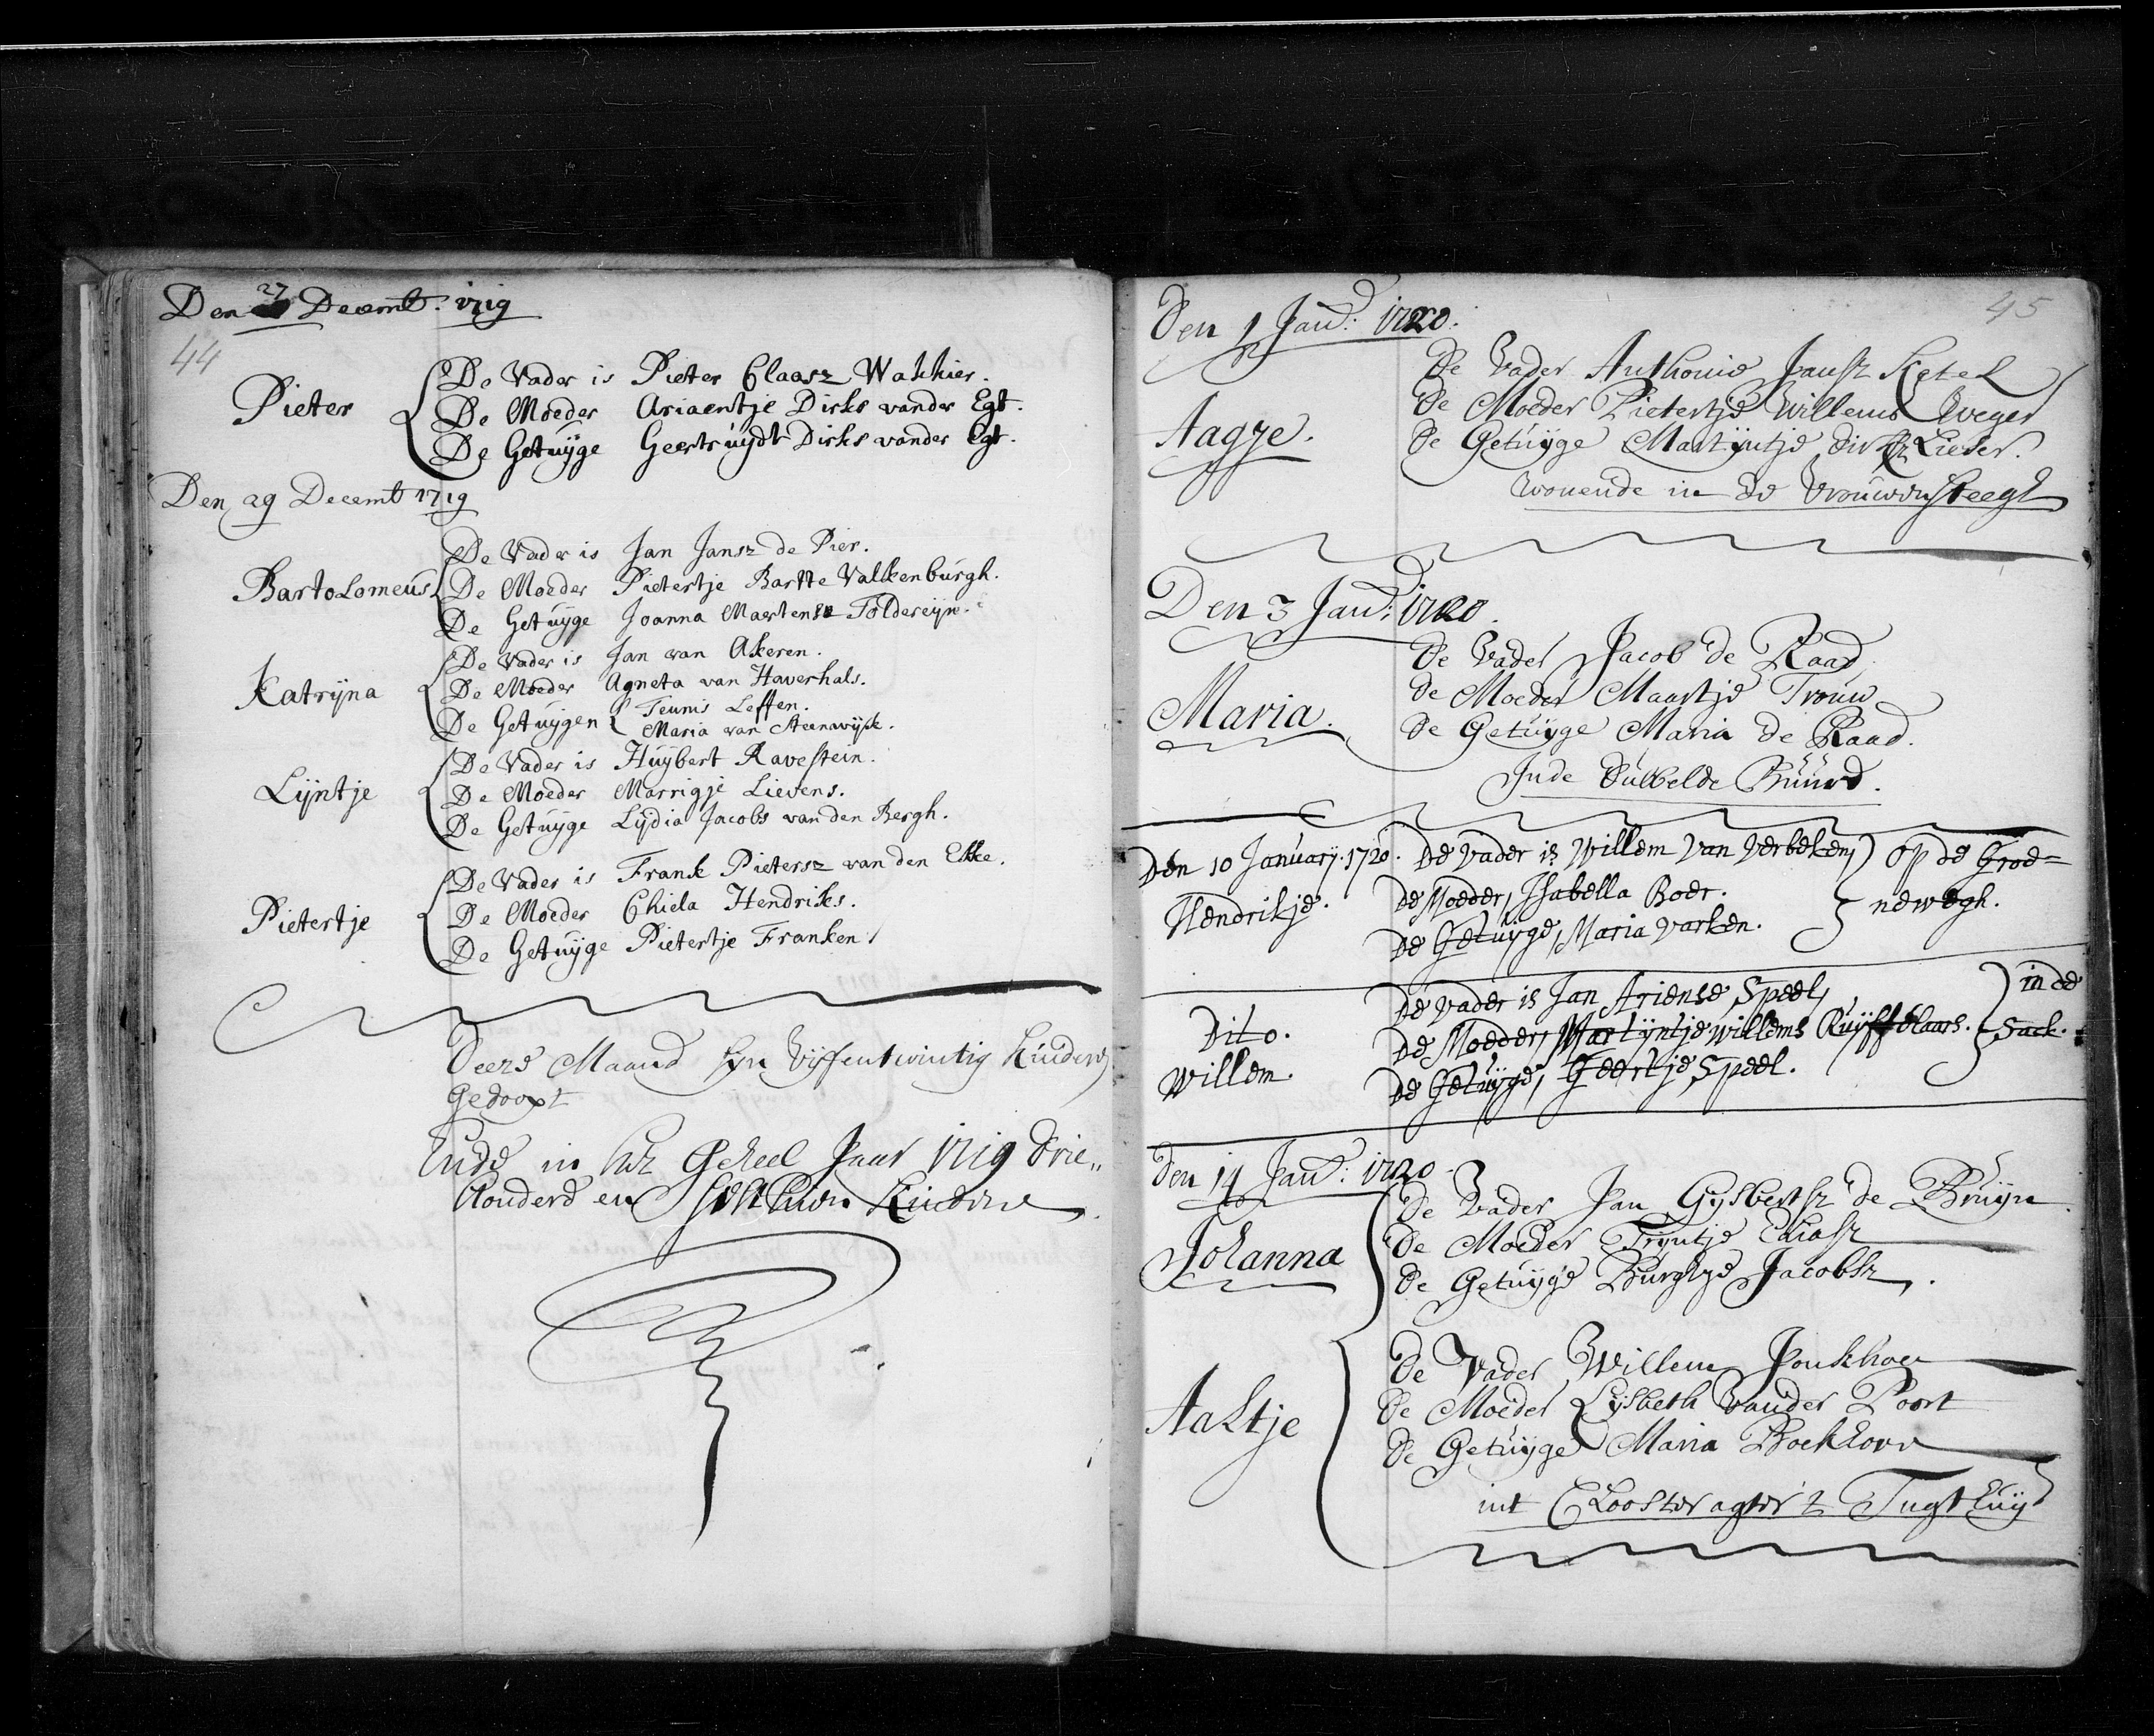 Den 27 Decemb: 1719
44
Pieter
De Vader is Pieter Claasz Wakkier.
De Moeder Ariaentje Dirks vander Egt.
De Getuijge Geertruijdt Dirks vander Egt.
Den 29 Decemb 1719
Bartolomeus
De Vader is Jan Jansz de Pier.
De Moeder Pietertje Bartte Valkenburgh.
De Getuijge Joanna Maertense Toldereijn.
Katrijna
De Vader is Jan van Akeren.
De Moeder Agneta van Haverhals.
De Getuijgen Teunis Leffen.
Maria van Steenawijck.
Lijntje
De Vader is Huijbert Ravestein.
De Moeder Marrigje Lievens.
De Getuijge Lydia Jacobs van den Bergh.
Pietertje
De Vader is Frank Pietersz van den Ekke.
De Moeder Chiela Hendriks.
De Getuijge Pietertje Franken
Deeze Maand sijn Vijfentwintig Kinderen
Gedoopt
Ende in het Geheel Jaar 1719 Drie„
Honderd en Kinderen
45
Den 1 Janu: 1720.
Aagje.
De Vader Anthonie Jansz Ketel
De Moeder Pietertje Willems Weger
De Getuijge Martijntje dirksz Lieder.
Wonende in de Vrouwensteegh
Den 3 Janu: 1720.
Maria.
De Vader Jacob de Raad
De Moeder Maartje Trouw
De Getuijge Maria de Raad.
Inde Dubbelde Buurd.
Den 10 January. 1720. De Vader is Willem Van Verbeken, op de Groe=
Hendrikje. De Moeder, Isabella Boer. newegh.
De Getuijge, Maria Varken.
Dito.
De Vader is Jan Ariense Speel, in de
De Moeder, Martijntje Willems Ruijfhlaars. Sack.
Willem.
De Getuijge, Geertje Speel.
Den 14 Janu: 1720
Johanna
De Vader Jan Gijsbertsz de Bruijn
De Moeder Trijntje Claasz
De Getuijge Burghje Jacobsz.
Aaltje
De Vader Willem Jonkhoen
De Moeder Lijsbeth Vander Poort
De Getuijge Maria Boekhoorn
int Clooster agter 't Tugthuijs